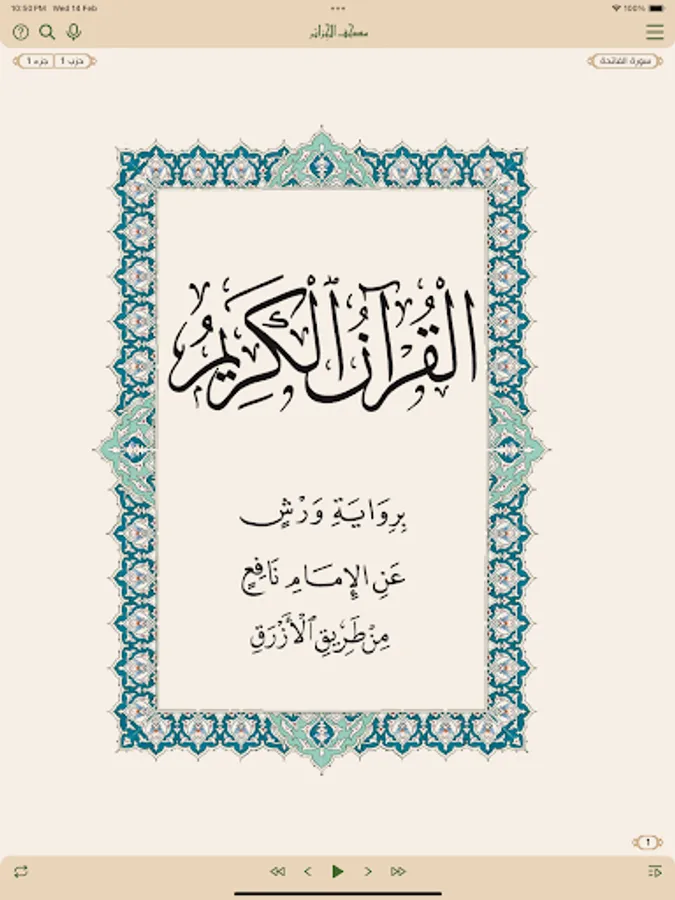 10:50 PM Wed 14 Feb 100%
مصحف الجزائر
سورة الفاتحة
حزب 1 جزء 1
الْقُرْآنُ الْكَرِيمُ
بِرِوَايَةِ وَرْشٍ
عَنِ الإِمَامِ نَافِعٍ
مِنْ طَرِيقِ الْأَزْرَقِ
1